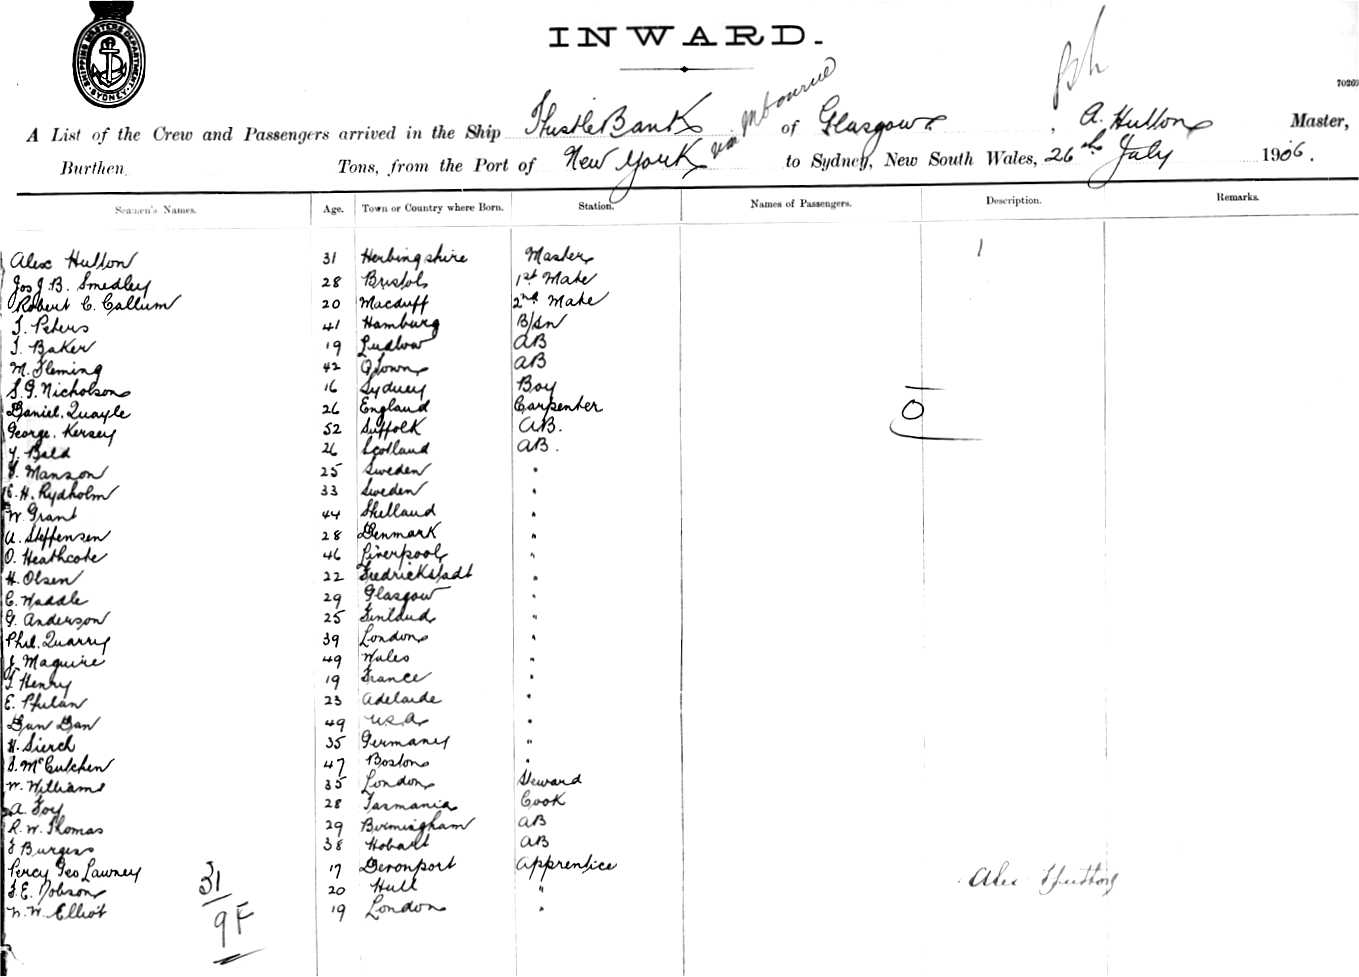 SHIPPING MASTERS DEPARTMENT SYDNEY
INWARD.
70269
A List of the Crew and Passengers arrived in the Ship ThistleBank via Mbourne of Glasgow, A. Hutton Master,
Burthen Tons, from the Port of New York to Sydney, New South Wales, 26th July 1906.
Seamen's Names. Age. Town or Country where Born. Station. Names of Passengers. Description. Remarks.
Alex Hutton 31 Herbingshire Master 1
Jos J. B. Smedley 28 Bristol 1st Mate
Robert C. Callum 20 Macduff 2nd Mate
J. Peters 41 Hamburg B/sn
J. Baker 19 Ludlow AB
M. Fleming 42 Qtown AB
S. G. Nicholson 16 Sydney Boy
Daniel. Quayle 26 England Carpenter O
George. Kersey 52 Suffolk AB.
Y. Bald 26 Scotland AB.
F. Manson 25 Sweden "
E. H. Rydholm 33 Sweden "
W. Grant 44 Shetland "
A. Steffensen 28 Denmark "
O. Heathcote 46 Liverpool "
H. Olsen 22 Fredrickstadt "
C. Waddle 29 Glasgow "
G. Anderson 25 Finland "
Phil. Quarry 39 London "
J. Maguire 49 Wales "
F. Henry 19 France "
E. Phelan 23 Adelaide "
Dan Dan 49 U.S.A. "
H. Sierch 35 Germany "
S. McCutchen 47 Boston "
W. Williams 35 London Steward
A. Foy 28 Tasmania Cook
R. W. Thomas 29 Birmingham AB
F Burgess 38 Hobart AB
Percy Geo Lawney 17 Devonport Apprentice
F. E. Dobson 20 Hull "
Alex Hutton
W. W. Elliot 19 London "
31
9F